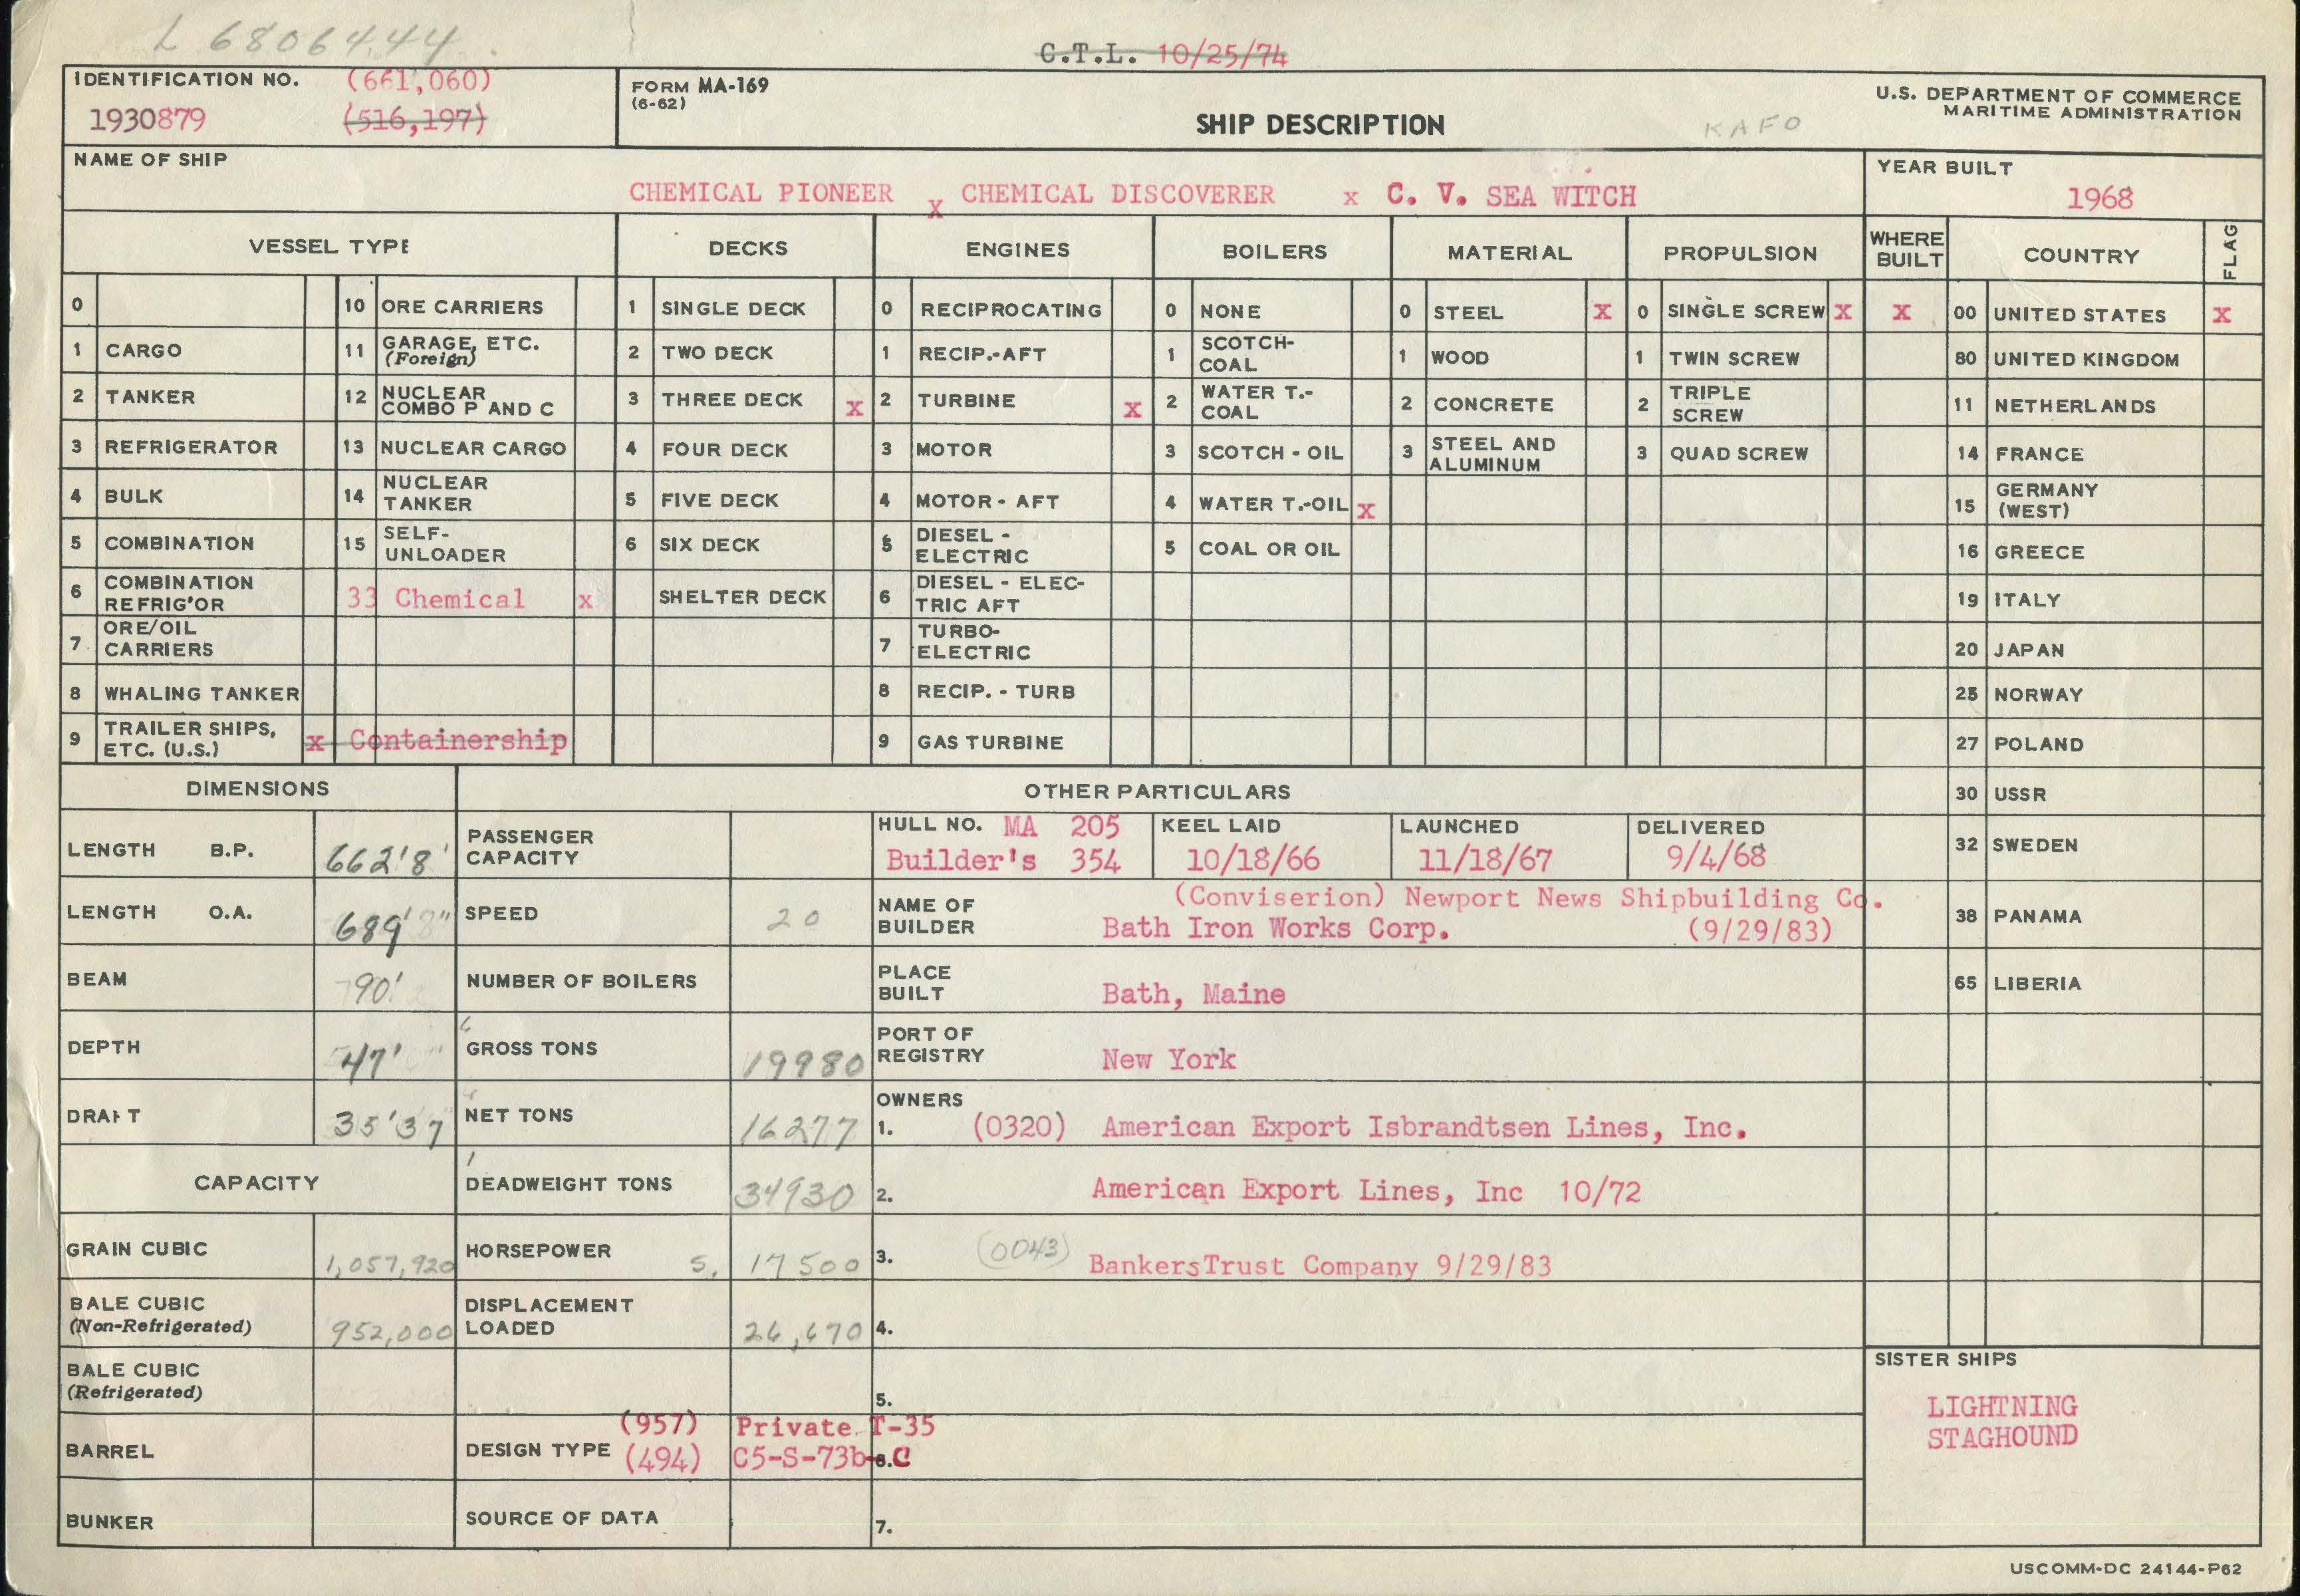 L 6806444
C.T.L. 10/25/74
IDENTIFICATION NO. (661,060)
1930879 (516,197)
FORM MA-169
(6-62)
SHIP DESCRIPTION
KAFO
U.S. DEPARTMENT OF COMMERCE
MARITIME ADMINISTRATION
NAME OF SHIP
CHEMICAL PIONEER x CHEMICAL DISCOVERER x C. V. SEA WITCH
YEAR BUILT
1968
VESSEL TYPE DECKS ENGINES BOILERS MATERIAL PROPULSION WHERE BUILT COUNTRY FLAG
0 10 ORE CARRIERS 1 SINGLE DECK 0 RECIPROCATING 0 NONE 0 STEEL x 0 SINGLE SCREW x x 00 UNITED STATES x
1 CARGO 11 GARAGE, ETC. (Foreign) 2 TWO DECK 1 RECIP.-AFT 1 SCOTCH-COAL 1 WOOD 1 TWIN SCREW 80 UNITED KINGDOM
2 TANKER 12 NUCLEAR COMBO P AND C 3 THREE DECK x 2 TURBINE x 2 WATER T.-COAL 2 CONCRETE 2 TRIPLE SCREW 11 NETHERLANDS
3 REFRIGERATOR 13 NUCLEAR CARGO 4 FOUR DECK 3 MOTOR 3 SCOTCH - OIL 3 STEEL AND ALUMINUM 3 QUAD SCREW 14 FRANCE
4 BULK 14 NUCLEAR TANKER 5 FIVE DECK 4 MOTOR - AFT 4 WATER T.-OIL x 15 GERMANY (WEST)
5 COMBINATION 15 SELF-UNLOADER 6 SIX DECK 5 DIESEL - ELECTRIC 5 COAL OR OIL 16 GREECE
6 COMBINATION REFRIG'OR 33 Chemical x SHELTER DECK 6 DIESEL - ELECTRIC AFT 19 ITALY
7 ORE/OIL CARRIERS 7 TURBO-ELECTRIC 20 JAPAN
8 WHALING TANKER 8 RECIP. - TURB 25 NORWAY
9 TRAILER SHIPS, ETC. (U.S.) x Containership 9 GAS TURBINE 27 POLAND
DIMENSIONS OTHER PARTICULARS 30 USSR
LENGTH B.P. 662'8' PASSENGER CAPACITY
HULL NO. MA 205 KEEL LAID LAUNCHED DELIVERED
Builder's 354 10/18/66 11/18/67 9/4/68
32 SWEDEN
LENGTH O.A. 689' 8" SPEED 20
NAME OF BUILDER (Conviserion) Newport News Shipbuilding Co.
Bath Iron Works Corp. (9/29/83)
38 PANAMA
BEAM 90' NUMBER OF BOILERS
PLACE BUILT Bath, Maine
65 LIBERIA
DEPTH 47' GROSS TONS 19980
PORT OF REGISTRY New York
DRAFT 35'37 NET TONS 16277
OWNERS
1. (0320) American Export Isbrandtsen Lines, Inc.
CAPACITY DEADWEIGHT TONS 34930
2. American Export Lines, Inc 10/72
GRAIN CUBIC 1,057,920 HORSEPOWER S. 17500
3. (0043) BankersTrust Company 9/29/83
BALE CUBIC (Non-Refrigerated) 952,000 DISPLACEMENT LOADED 26,670 4.
BALE CUBIC (Refrigerated) 5.
SISTER SHIPS
LIGHTNING
STAGHOUND
BARREL DESIGN TYPE (957) Private T-35
(494) C5-S-73b-C 6.
BUNKER SOURCE OF DATA 7.
USCOMM-DC 24144-P62